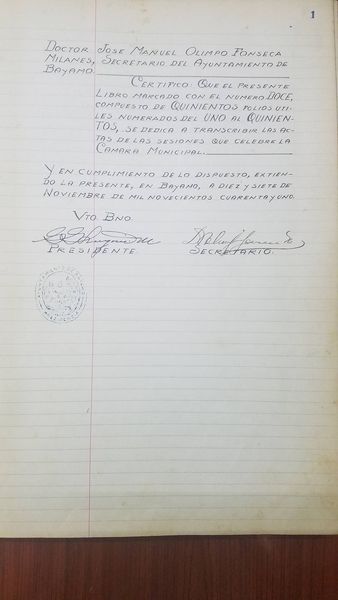 1
DOCTOR JOSE MANUEL OLIMPO FONSECA
MILANES, SECRETARIO DEL AYUNTAMIENTO DE
BAYAMO
CERTIFICO: QUE EL PRESENTE
LIBRO MARCADO CON EL NUMERO DOCE,
COMPUESTO DE QUINIENTOS FOLIOS UTI-
LES NUMERADOS DEL UNO AL QUINIEN-
TOS, SE DEDICA A TRANSCRIBIR LAS AC-
TAS DE LAS SESIONES QUE CELEBRE LA
CAMARA MUNICIPAL.
Y EN CUMPLIMIENTO DE LO DISPUESTO, EXTIEN-
DO LA PRESENTE, EN BAYAMO, A DIEZ Y SIETE DE
NOVIEMBRE DE MIL NOVECIENTOS CUARENTA Y UNO.
VTO BNO.
PRESIDENTE. SECRETARIO.